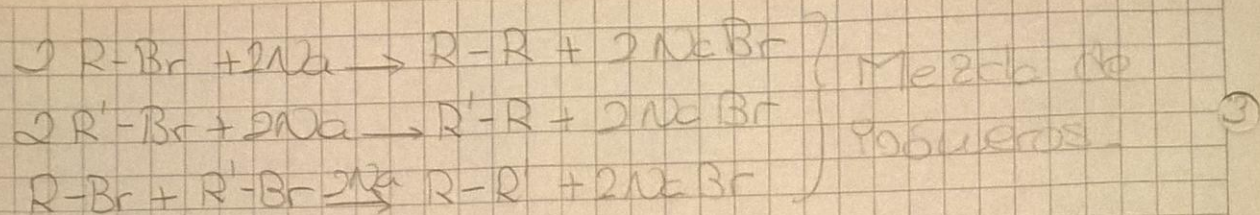 2 R-Br + 2Na → R-R + 2NaBr
2 R'-Br + 2Na → R'-R + 2NaBr
R-Br + R'-Br 2Na → R-R' + 2NaBr
Mezcla de
3